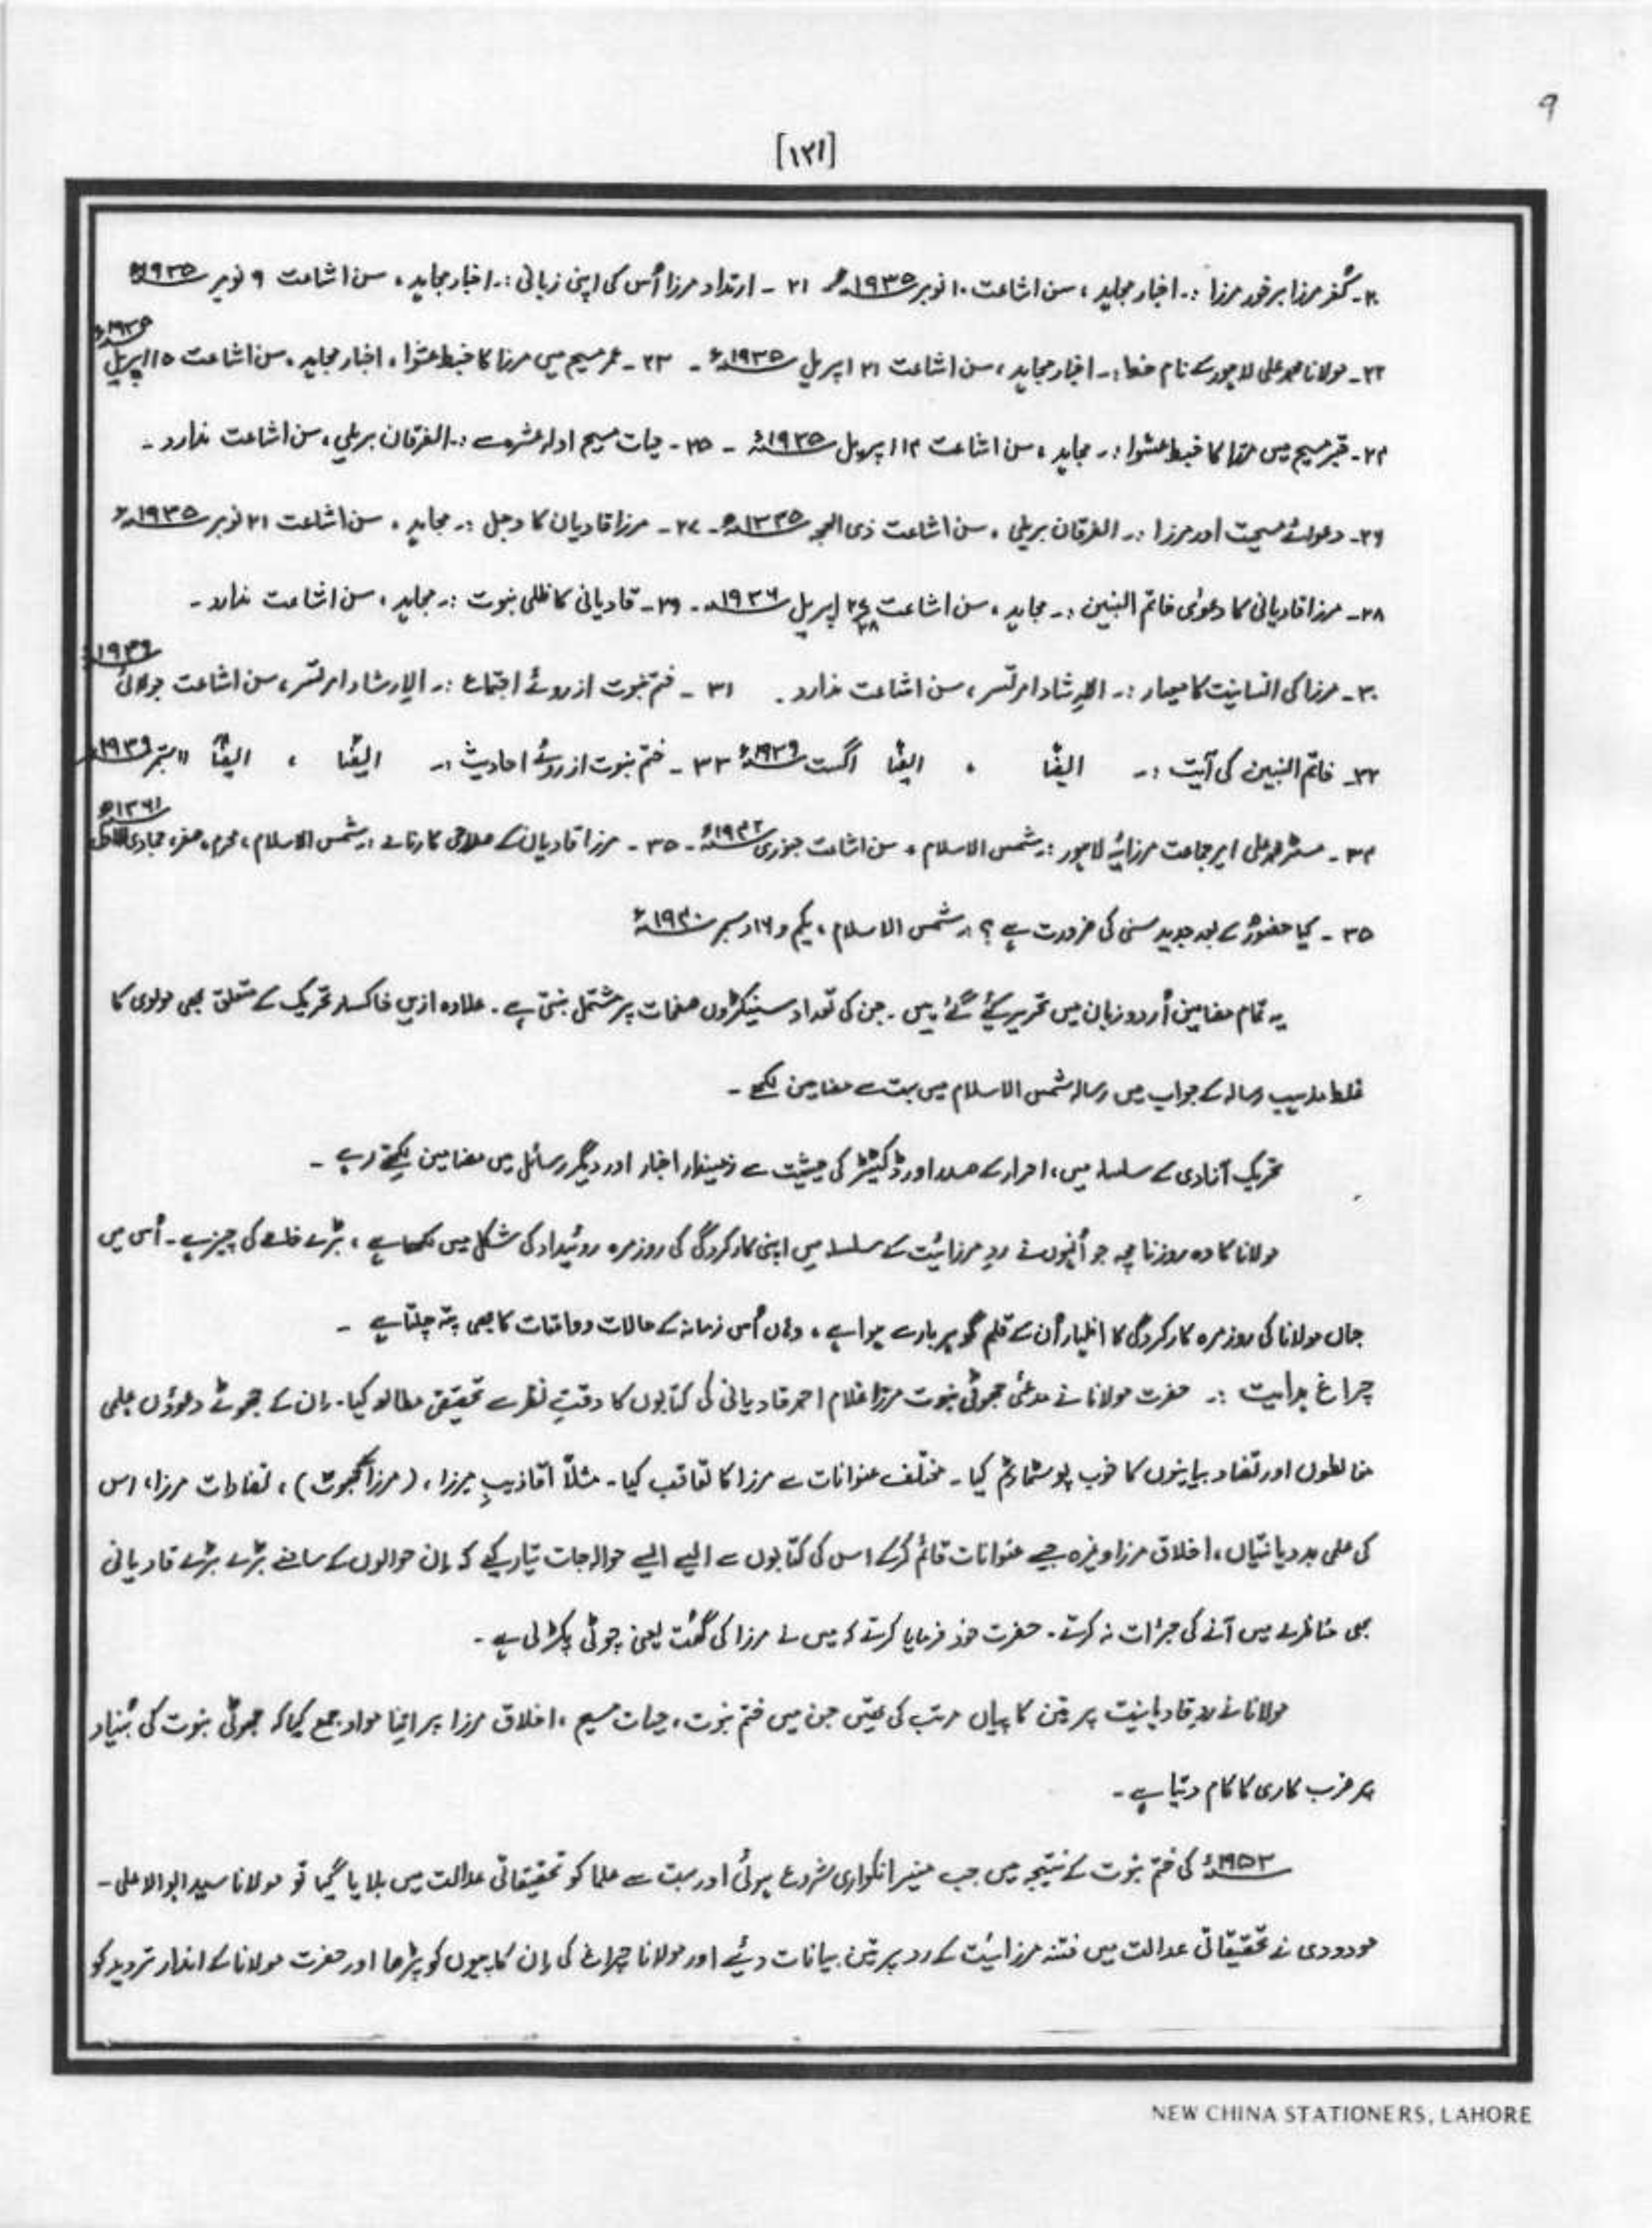 ۹
[۱۲۱]
۲۰۔ کفر مرزا برخود مرزا :۔ اخبار مجاہد ، سن اشاعت ۱۰ نومبر ۱۹۳۵ء ۲۱ ۔ ارتداد مرزا اُس کی اپنی زبانی :۔ اخبار مجاہد ، سن اشاعت ۹ نومبر ۱۹۳۵ء
۲۲۔ مولانا محمد علی لاہور کے نام خط :۔ اخبار مجاہد ، سن اشاعت ۲۱ اپریل ۱۹۳۵ء ۔ ۲۳ ۔ عمر مسیح میں مرزا کا خبط عشوا ، اخبار مجاہد ، سن اشاعت ۱۵ اپریل ۱۹۳۵ء
۲۴۔ قبر مسیح میں مرزا کا خبط عشوا :۔ مجاہد ، سن اشاعت ۱۲ اپریل ۱۹۳۵ء ۔ ۲۵ ۔ حیات مسیح ادلہ عشرہ سے :۔ الفرقان بریلی ، سن اشاعت ندارد ۔
۲۶۔ دعوائے مسیحیت اور مرزا :۔ الفرقان بریلی ، سن اشاعت ذی الحجہ ۱۳۳۵ھ ۔ ۲۷ ۔ مرزا قادیان کا دجل :۔ مجاہد ، سن اشاعت ۲۱ نومبر ۱۹۳۵ء
۲۸۔ مرزا قادیانی کا دعوٰی خاتم النبین :۔ مجاہد ، سن اشاعت ۲۸ اپریل ۱۹۳۶ء ۔ ۲۹ ۔ قادیانی کا ظلی نبوت :۔ مجاہد ، سن اشاعت ندارد ۔
۳۰۔ مرزا کی انسانیت کا معیار :۔ الارشاد امرتسر ، سن اشاعت ندارد ۔ ۳۱ ۔ ختم نبوت از روئے اجتماع :۔ الارشاد امرتسر ، سن اشاعت جولائی ۱۹۳۹ء
۳۲۔ خاتم النبین کی آیت :۔ ایضًا ، ایضًا اگست ۱۹۳۹ء ۳۳ ۔ ختم نبوت از روئے احادیث :۔ ایضًا ، ایضًا ستمبر ۱۹۳۹ء
۳۴ ۔ مسٹر محمد علی امیر جماعت مرزائیہ لاہور :۔ شمس الاسلام ، سن اشاعت جنوری ۱۹۴۲ء ۔ ۳۵ ۔ مرزا قادیان کے کارنامے :۔ شمس الاسلام ، محرم ، صفر ، جمادی الاول ۱۳۶۱ھ
۳۵ ۔ کیا حضورؐ کے بعد جدید سنی کی ضرورت ہے ؟ :۔ شمس الاسلام ، یکم و ۱۶ دسمبر ۱۹۳۰ء
یہ تمام مضامین اُردو زبان میں تحریر کئے گئے ہیں ۔ جن کی تعداد سینکڑوں صفحات پر مشتمل بنتی ہے ۔ علاوہ ازیں خاکسار تحریک کے متعلق بھی مولوی کا
غلط مذہب رسالہ کے جواب میں رسالہ شمس الاسلام میں بہت سے مضامین لکھے ۔
تحریک آزادی کے سلسلہ میں ، احرار کے صدر اور ڈکٹیٹر کی حیثیت سے زمیندار اخبار اور دیگر رسائل میں مضامین لکھتے رہے ۔
مولانا کا وہ روزنامچہ جو اُنہوں نے ردِ مرزائیت کے سلسلہ میں اپنی کارکردگی کی روزمرہ روئیداد کی شکل میں لکھا ہے ، بڑے خاصے کی چیز ہے ۔ اُس میں
جہاں مولانا کی روزمرہ کارکردگی کا اظہار اُن کے قلم گوہر بار سے ہوا ہے ، وہاں اُس زمانہ کے حالات و واقعات کا بھی پتہ چلتا ہے ۔
چراغ ہدایت :۔ حضرت مولانا نے مدعئی جھوٹی نبوت مرزا غلام احمد قادیانی کی کتابوں کا دقتِ نظر سے تحقیقی مطالعہ کیا ۔ اِن کے جھوٹے دعوؤں علمی
مغالطوں اور تضاد بیانیوں کا خوب پوسٹمارٹم کیا ۔ مختلف عنوانات سے مرزا کا تعاقب کیا ۔ مثلاً اکاذیبِ مرزا ، (مرزا کا جھوٹ) ، تضادات مرزا ، اس
کی علمی بددیانتیاں ، اخلاق مرزا وغیرہ جیسے عنوانات قائم کرکے اس کی کتابوں سے ایسے ایسے حوالہ جات تیار کیے کہ اِن حوالوں کے سامنے بڑے بڑے قادیانی
بھی مناظرے میں آنے کی جرأت نہ کرتے ۔ حضرت خود فرمایا کرتے کہ میں نے مرزا کی گُت یعنی چوٹی پکڑ لی ہے ۔
مولانا نے ردِ قادیانیت پر تین کاپیاں مرتب کی تھیں جن میں ختم نبوت ، حیات مسیح ، اخلاق مرزا پر اتنا مواد جمع کیا کہ جھوٹی نبوت کی بُنیاد
پر ضرب کاری کا کام دیتا ہے ۔
۱۹۵۳ء کی ختم نبوت کے نتیجہ میں جب منیر انکوائری شروع ہوئی اور بہت سے علما کو تحقیقاتی عدالت میں بلایا گیا تو مولانا سید ابوالاعلی ۔
مودودی نے تحقیقاتی عدالت میں فتنہ مرزائیت کے رد پر تین بیانات دیئے اور مولانا چراغ کی اِن کاپیوں کو پڑھا اور حضرت مولانا کے انداز تردید کو
NEW CHINA STATIONERS, LAHORE